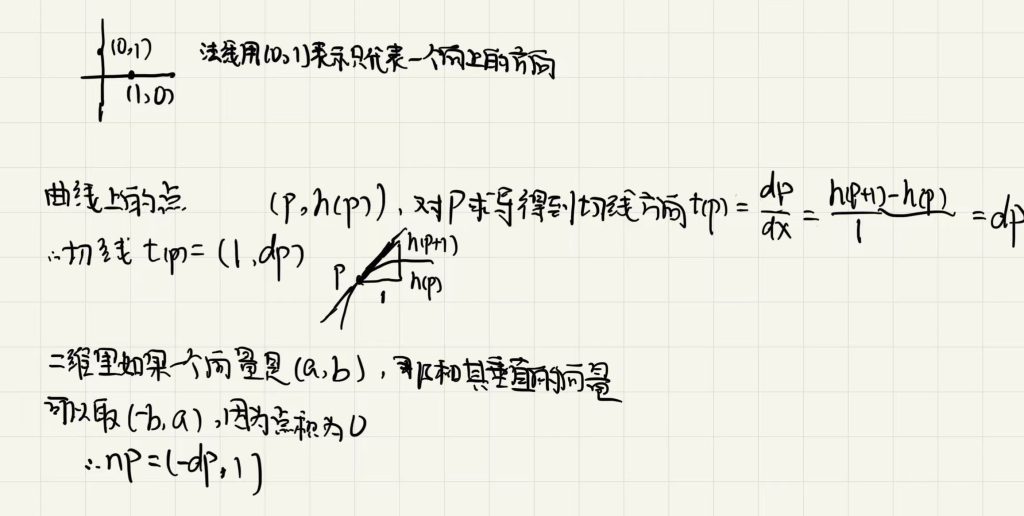 (0,1)
法线用(0,1)表示只代表一个向上的方向
(1,0)
曲线上的点 (p,h(p)),对P求导得到切线方向t(p) = dp/dx = h(p+1)-h(p)/1 = dp
∴切线 t(p) = (1,dp)
h(p+1)
P
h(p)
1
二维里如果一个向量是(a,b),那和其垂直的向量
可以取(-b,a),因为点积为0
∴np=(-dp,1)